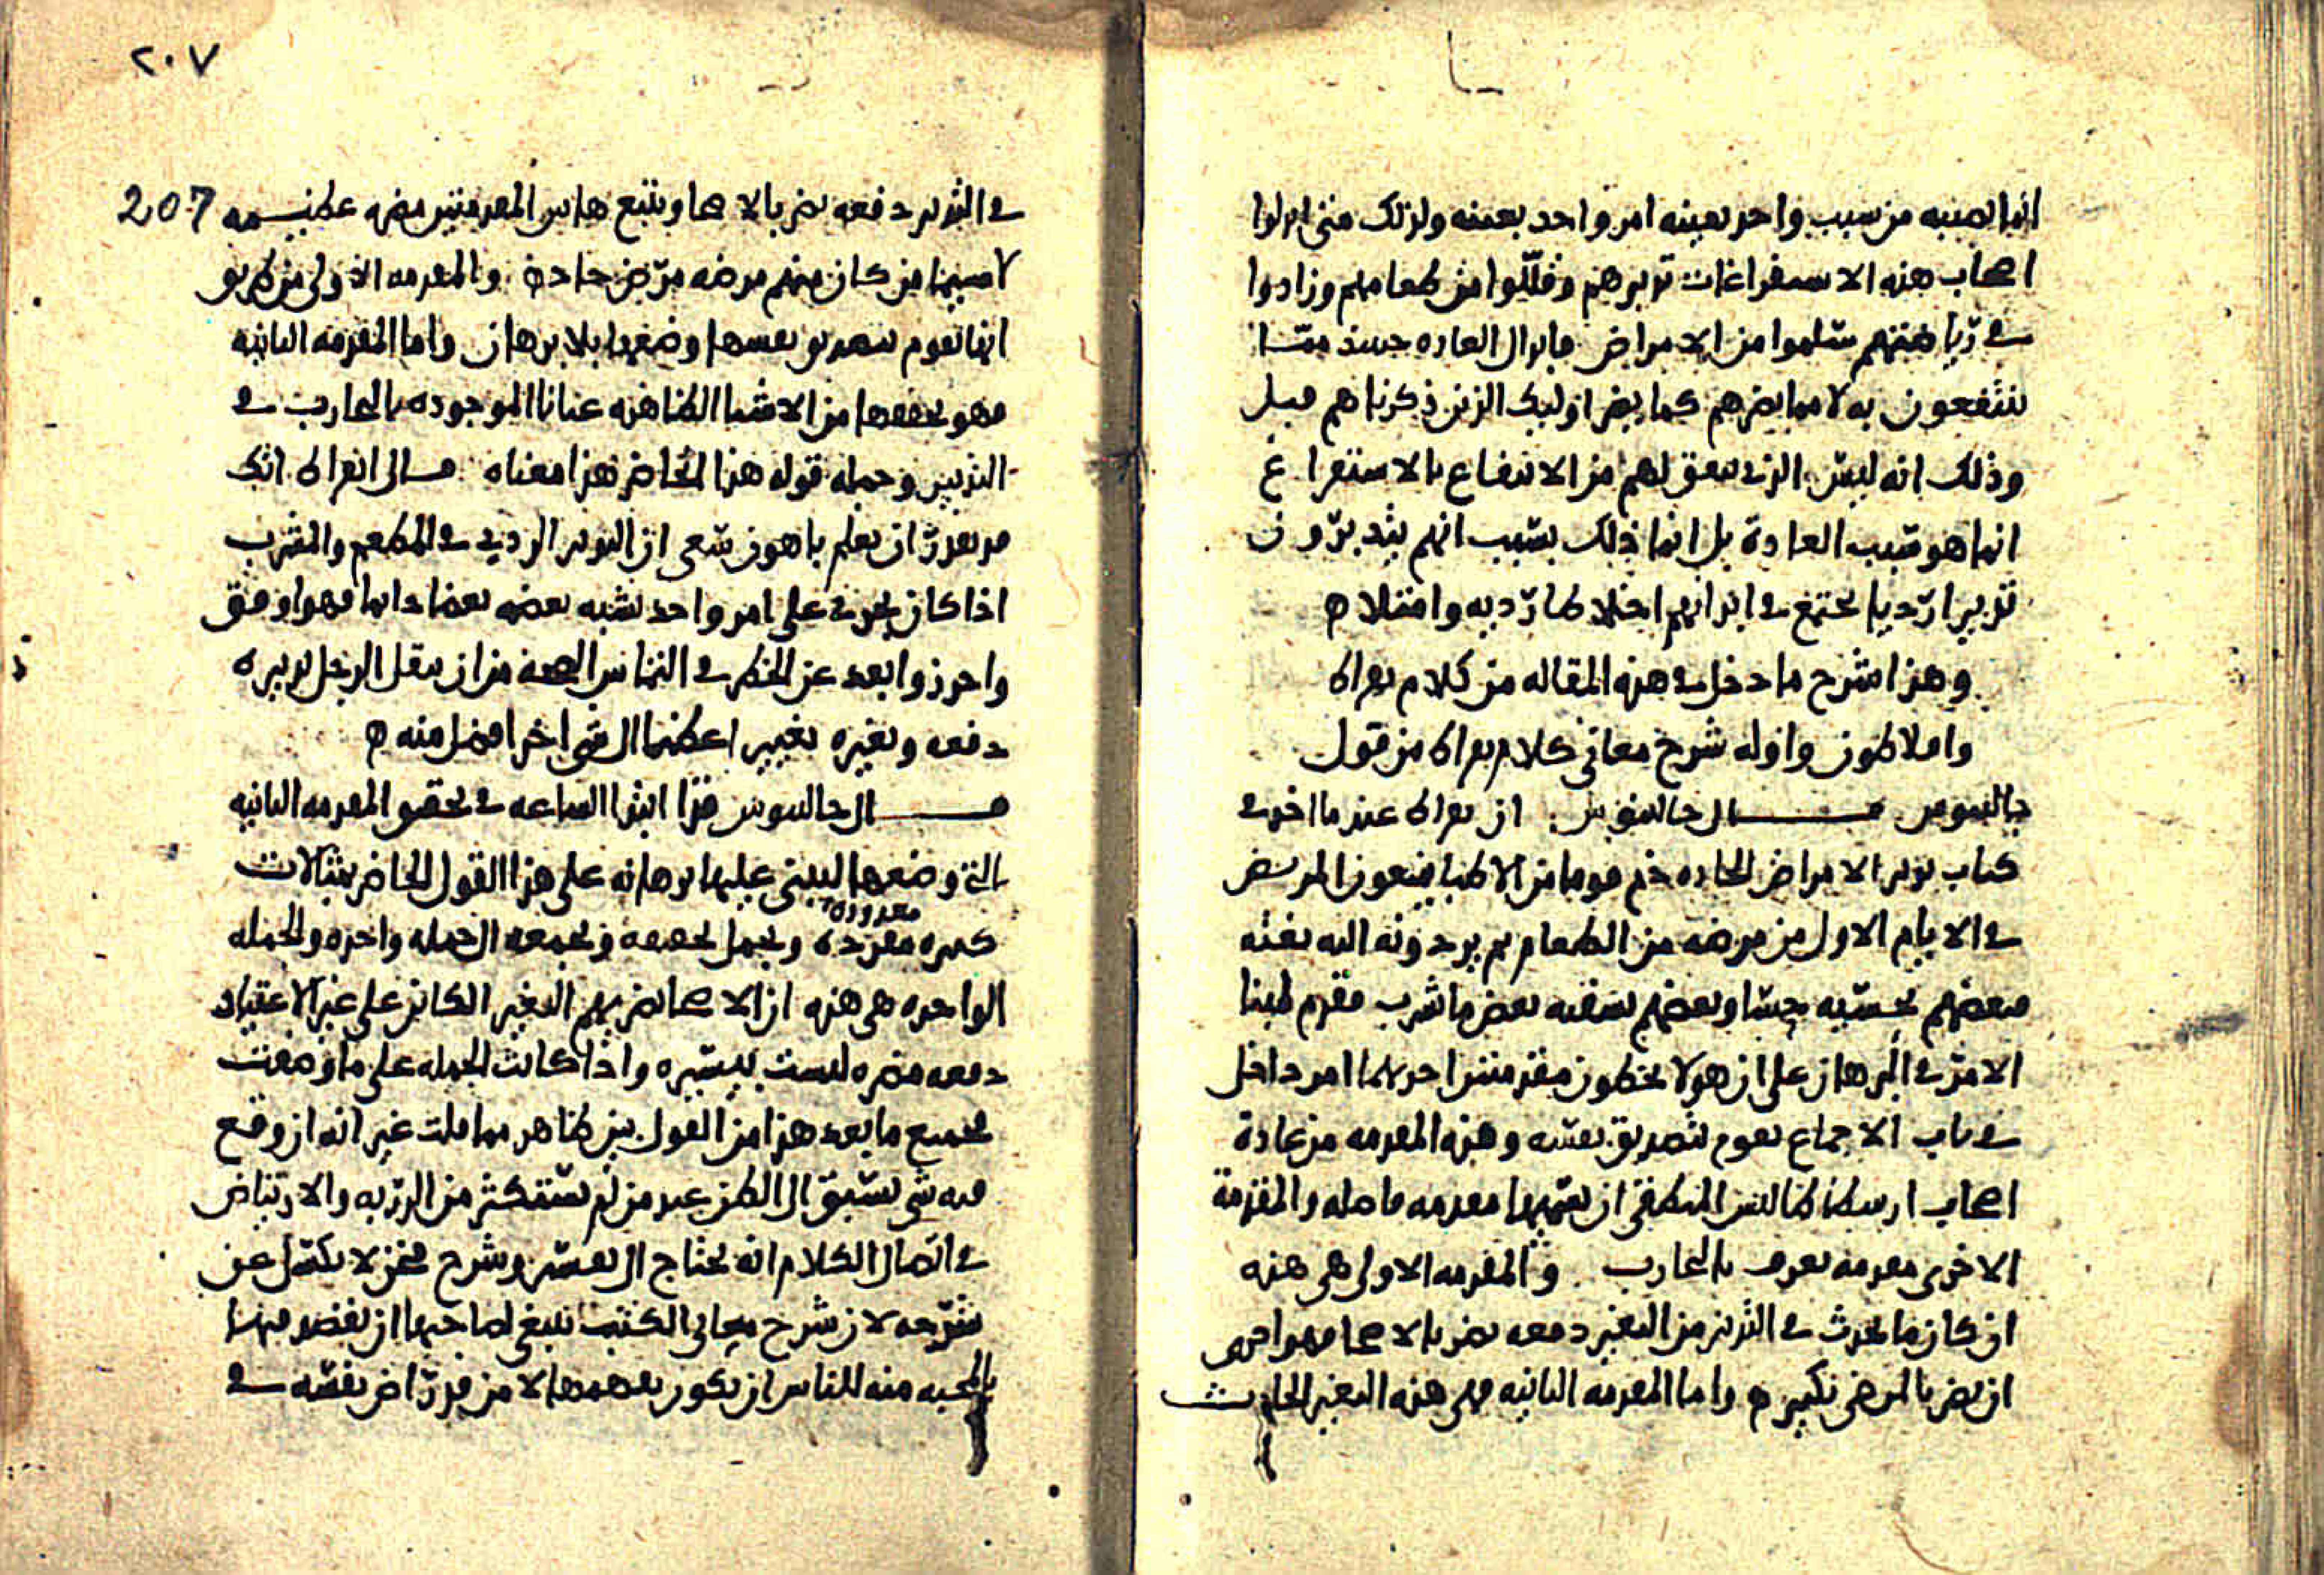 انما يصيبه من سبب واحد بعينه امر واحد بعينه ولذلك متى ابدلوا
اصحاب هذه الاستفراغات تدبيرهم وقللوا من طعامهم وزادوا
في رياضتهم سلموا من الامراض فابدال العادة حينئذ مما
ينتفعون به لا مما يضرهم كما يضر اوليك الذين ذكرناهم قبل
وذلك انه ليس الذي يتفق لهم من الانتفاع بالاستفراغ
انما هو بسبب العادة بل انما ذلك بسبب انهم يتدبرون
تدبيرا رديا يجتمع في ابدانهم اخلاط رديه وامتلا ه
وهذا شرح ما دخل في هذه المقاله من كلام بقراط
وافلاطون واوله شرح معاني كلام بقراط من قول
جالينوس قال جالينوس ان بقراط عندما اخذ في
كتاب تدبير الامراض الحاده ذم قوما من الاطبا يمنعون المريض
في الايام الاول من مرضه من الطعام ثم يردونه اليه بغته
فبعضهم يحسيه حسا وبعضهم يسقيه بعض ما شرب فقدم لهذا
الامر في البرهان على ان هولا يخطون مقدمتين احديهما امر داخل
في باب الاجماع يقوم بتصديق نفسه وهذه المقدمه من عادة
اصحاب ارسطاطاليس المنطقي ان يسميها مقدمه فاصله والمقدمة
الاخرى مقدمه تعرف بالتجارب والمقدمه الاولى هي هذه
ان كان ما يحدث في التدبير من التغير دفعه يضر بالاصحا فهو احرى
ان يضر بالمرضى بكثير ه واما المقدمه الثانيه فهي هذه التغير الحادث
٢٠٧
في التدبير دفعه يضر بالاصحا ويتبع هاتين المقدمتين مضره عظيمه 207
لا سيما من كان منهم مرضه مرض حادة والمقدمه الاولى من طريق
انها تقوم بتصديق نفسها وضعها بلا برهان واما المقدمه الثانيه
فهو يحققها من الاشيا الظاهره عيانا الموجوده بالتجارب في
التدبير وجمله قوله هذا الحاضر هذا معناه قال ابقراط انك
قد تقدر ان تعلم باهون سعي ان التدبير الردي في المطعم والمشرب
اذا كان يجري على امر واحد يشبه بعضه بعضا دايما فهو اوفق
واحرز وابعد عن الخطر في التماس الصحه من ان ينقل الرجل تدبيره
دفعه ويغيره تغيير اعظيما الى شي اخر افضل منه ه
قال جالينوس هذا ابتدا الصناعه في تحقيق المقدمه الثانيه
التي وضعها ليبني عليها برهانه على هذا القول الحاضر بمثالات
معدوده
كثيره مفرده ويجمل تحقيقه ويجمعه الى جمله واحده والجمله
الواحده هي هذه ان الاصحا يضر بهم التغير الكائن على غير الاعتياد
دفعه مضره ليست بيسيره واذا كانت الجمله على ما وصفت
فجميع ما بعد هذا من القول بين ظاهر مما قلت غير انه ان وقع
فيه شي يسبق الى الظن عند من لم يستكثر من الدربه والارتياض
في اتصال الكلام انه يحتاج الى تفسير وشرح فنحن لا نكسل عن
شرحه لان شرح معاني الكتب ينبغي لصاحبها ان يقصد فيها
بالمحبه منه للناس ان يكون يفهمها الا من قد راض نفسه في